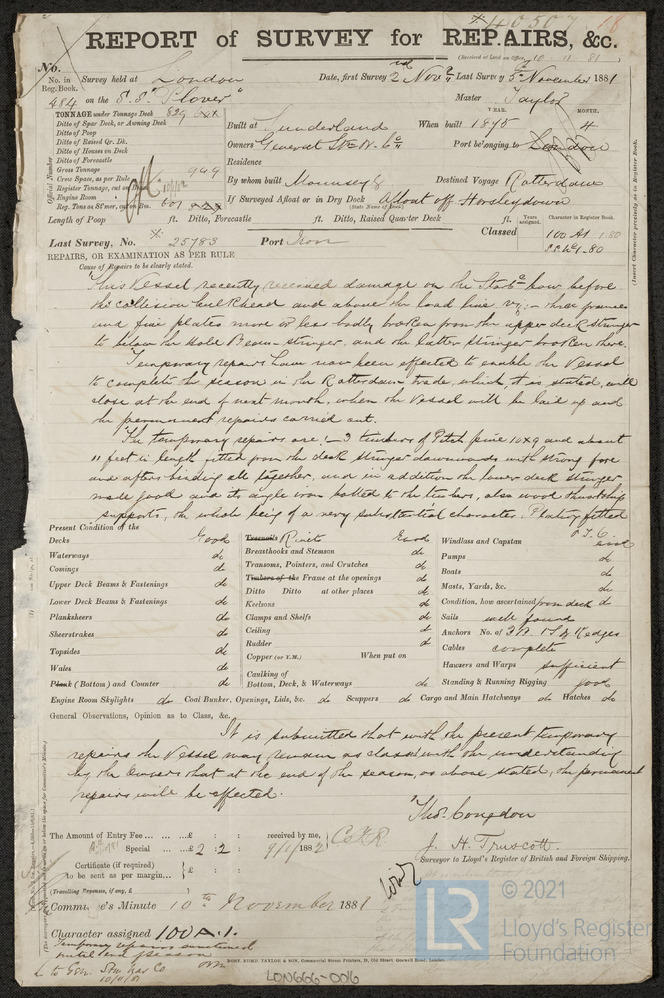 * 40507
REPORT of SURVEY for REPAIRS, &c.
(Received at London Office, 10-11-81)
No.
No. in Reg. Book. Survey held at London Date, first Survey 2nd Novr Last Survey 5th November 1881
484 on the S.S. "Plover" Master Taylor
TONNAGE under Tonnage Deck 829
Ditto of Spar Deck, or Awning Deck
Ditto of Poop
Ditto of Raised Qr. Dk.
Ditto of Houses on Deck
Ditto of Forecastle
Gross Tonnage 949
Cross Space, as per Rule
Register Tonnage, cut on Bm.
Engine Room
Reg. Tons as St'mer, cut on Bm. 601
Official Number
YEAR. MONTH.
Built at Sunderland When built 1875 4
Owners General Stm N. Co Port belonging to London
Residence
By whom built Mounsey & Destined Voyage Rotterdam
If Surveyed Afloat or in Dry Dock Afloat off Horsleydown
(State Name of Dock)
Length of Poop ft. Ditto, Forecastle ft. Ditto, Raised Quarter Deck ft. Years assigned. Character in Register Book.
Last Survey, No. * 25783 Port Iron Classed 100 A1 1.80
S.S. No 1-80
(Insert Character precisely as in Register Book.)
REPAIRS, OR EXAMINATION AS PER RULE
Cause of Repairs to be clearly stated.
This Vessel recently received damage on the Starbd bow before
the collision bulkhead and above the load line viz:- three frames
and five plates more or less badly broken from the upper deck stringer
to below the hold Beam stringer, and the latter stringer broken there.
Temporary repairs have now been effected to enable the Vessel
to complete the season in the Rotterdam trade, which it is stated, will
close at the end of next month, when the Vessel will be laid up and
the permanent repairs carried out.
The temporary repairs are:- 3 timbers of Pitch pine 10x9 and about
11 feet in length fitted from the deck stringer downwards with strong fore
and afters binding all together, and in addition the lower deck stringer
made good and its angle iron bolted to the timbers, also wood thwartship
supports, the whole being of a very substantial character. Plating fitted
Present Condition of the
Decks Good
Waterways do
Comings do
Upper Deck Beams & Fastenings do
Lower Deck Beams & Fastenings do
Planksheers do
Sheerstrakes do
Topsides do
Wales do
Plank (Bottom) and Counter do
Treenails Rivets Good
Breasthooks and Stemson do
Transoms, Pointers, and Crutches do
Timbers of the Frame at the openings do
Ditto Ditto at other places do
Keelsons do
Clamps and Shelfs do
Ceiling do
Rudder do
Copper (or Y.M.) When put on
Caulking of Bottom, Deck, & Waterways do
Windlass and Capstan good
Pumps do
Boats do
Masts, Yards, &c. do
Condition, how ascertained from deck do
Sails well found
Anchors No. of 3 B. 1 S & Kedges
Cables complete
Hawsers and Warps sufficient
Standing & Running Rigging good
Engine Room Skylights do Coal Bunker, Openings, Lids, &c. do Scuppers do Cargo and Main Hatchways do Hatches do
General Observations, Opinion as to Class, &c.
It is submitted that with the present temporary
repairs the Vessel may remain as classed with the understanding
by the Owners that at the end of the season, as above stated, the permanent
repairs will be effected.
Thos. Congdon
J. H. Truscott
Surveyor to Lloyd's Register of British and Foreign Shipping.
The Amount of Entry Fee ... ... ...£ : : received by me,
Special ... ...£ 2 : 2 : 9/1/1882
Certificate (if required) to be sent as per margin... }£ : :
(Travelling Expenses, if any, £ )
Committee's Minute 10th November 1881
Character assigned 100 A.1.
Temporary repairs sanctioned
until end season
L to Gen. Stm Nav Co
10/11/81
ROBT. KURD. TAYLOR & SON, Commercial Steam Printers, 19, Old Street, Goswell Road, London.
LON666-0016
LR
© 2021
Lloyd's Register
Foundation